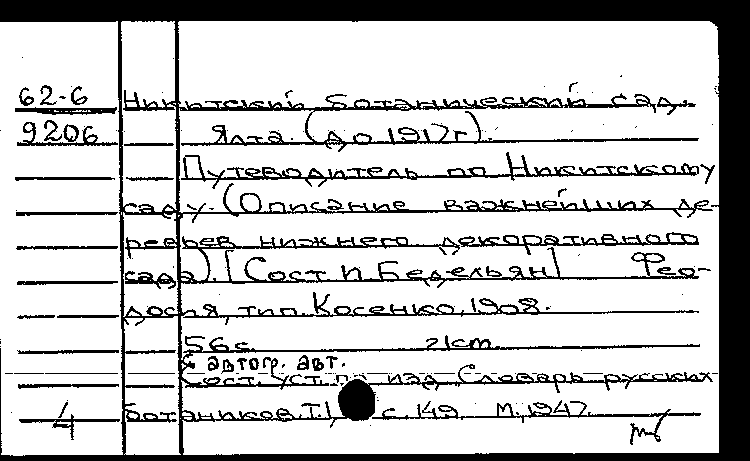 62-6 Никитский ботанический сад.
9206 Ялта. (до 1917г).
Путеводитель по Никитскому
саду. (Описание важнейших де-
ревьев нижнего декоративного
сада). [Сост И. Бедельян] Фео-
досия, тип. Косенко, 1908.
56с. 21cm.
С автогр. авт.
Сост. уст. по изд Словарь русских
4 ботаников. Т.1, с. 149. М., 1947.